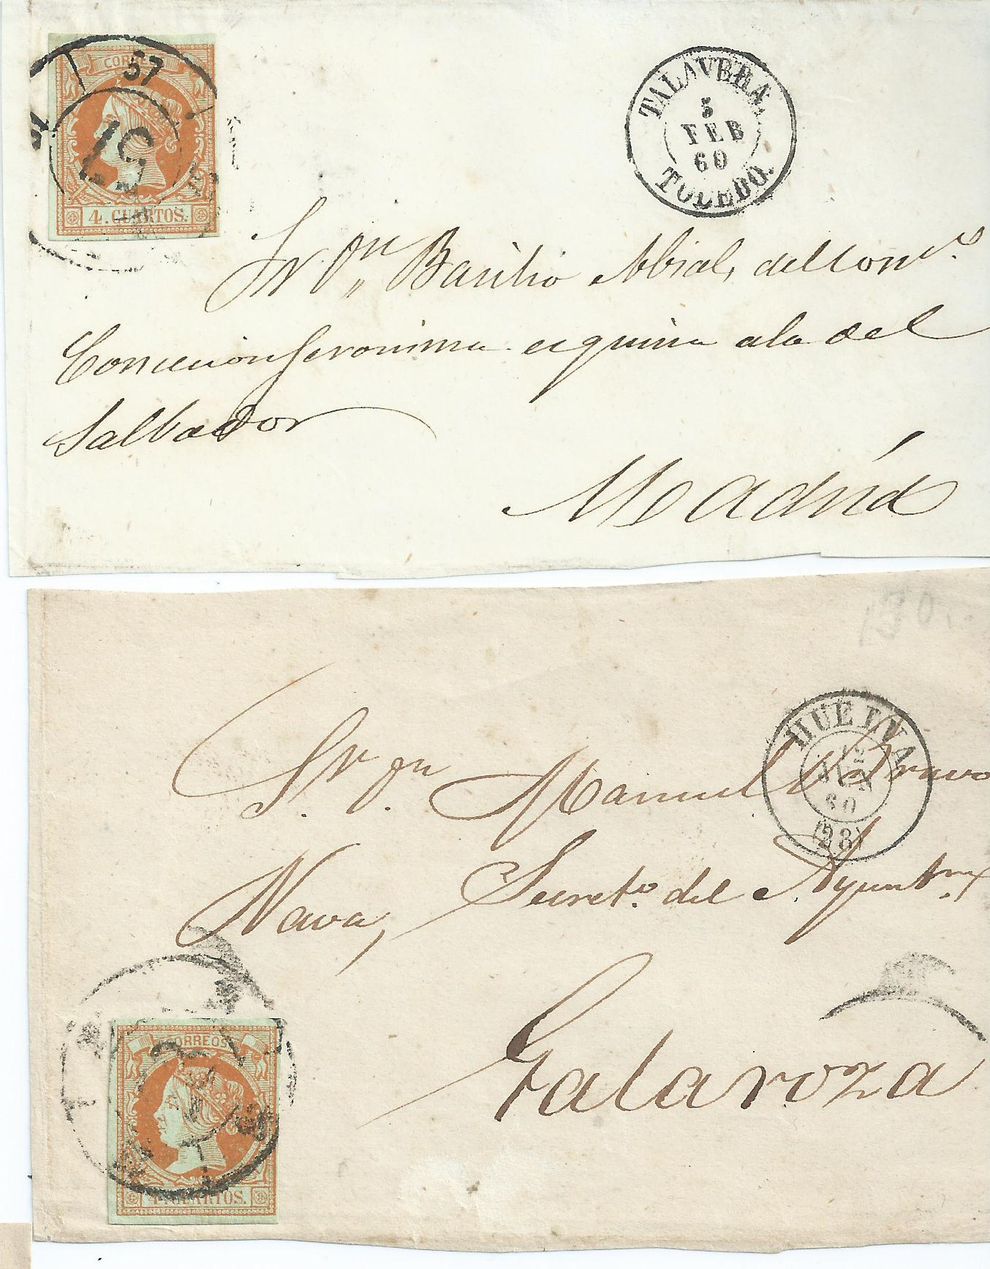 CORREOS
57
57
4. CUARTOS.
TALAVERA.
5
FEB
60
TOLEDO.
Sr Dn Basilio Abial, del Comº.
Concecion Geronima esquina ala del
Salbador
Madrid
130
HUELVA
12
JUN
60
(28)
Sr. Dn Manuel Mª Bravo
Nava, Secretº. del Ayuntm
CORREOS
4. CUARTOS.
Galaroza